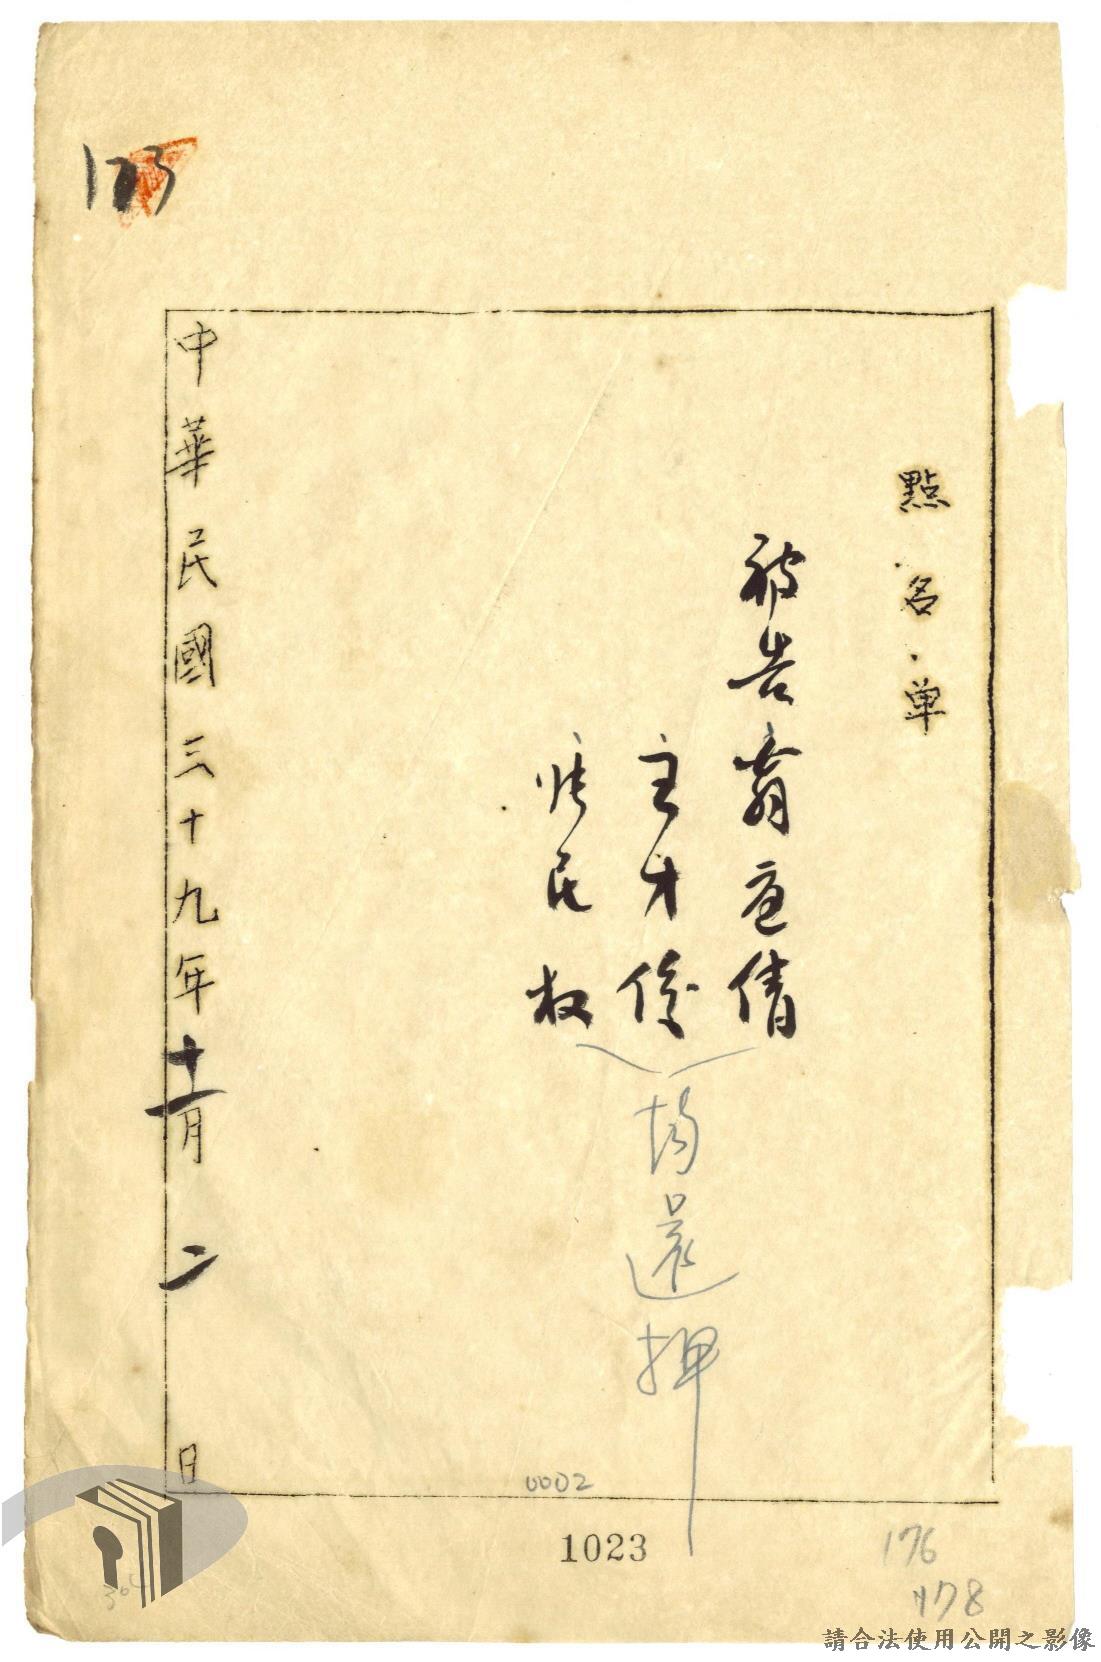 173
點名单
被告
張民权
均還押
中華民國三十九年十一月二日
0002
1023
176
178
請合法使用公開之影像